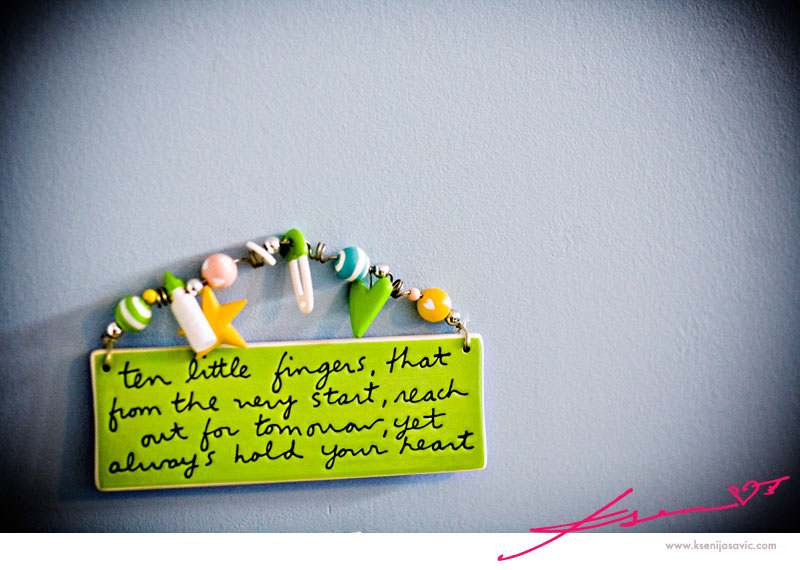 ten little fingers, that
from the very start, reach
out for tomorrow, yet
always hold your heart
Ksen
www.ksenijasavic.com